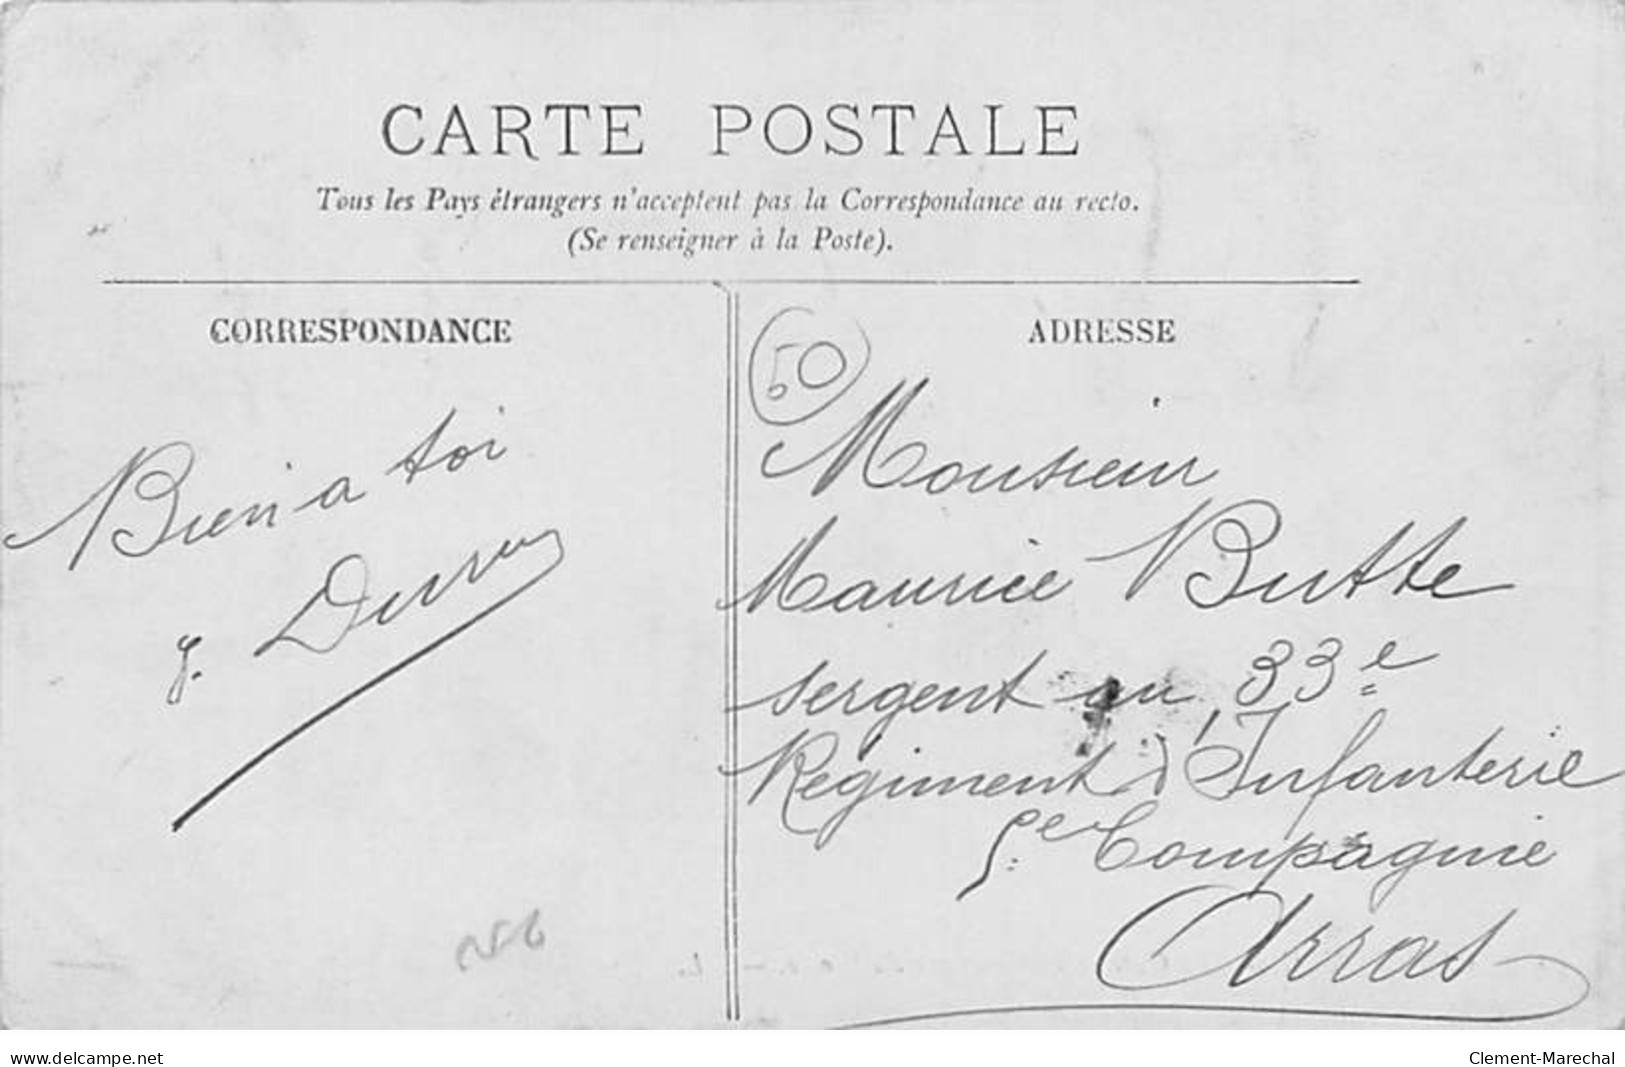 CARTE POSTALE
Tous les Pays étrangers n'acceptent pas la Correspondance au recto.
(Se renseigner à la Poste).
CORRESPONDANCE
ADRESSE
50
Bien a toi
Monsieur
Maurice Butte
sergent au 33e
Régiment d'Infanterie
5e Compagnie
Arras
www.delcampe.net
Clement-Marechal